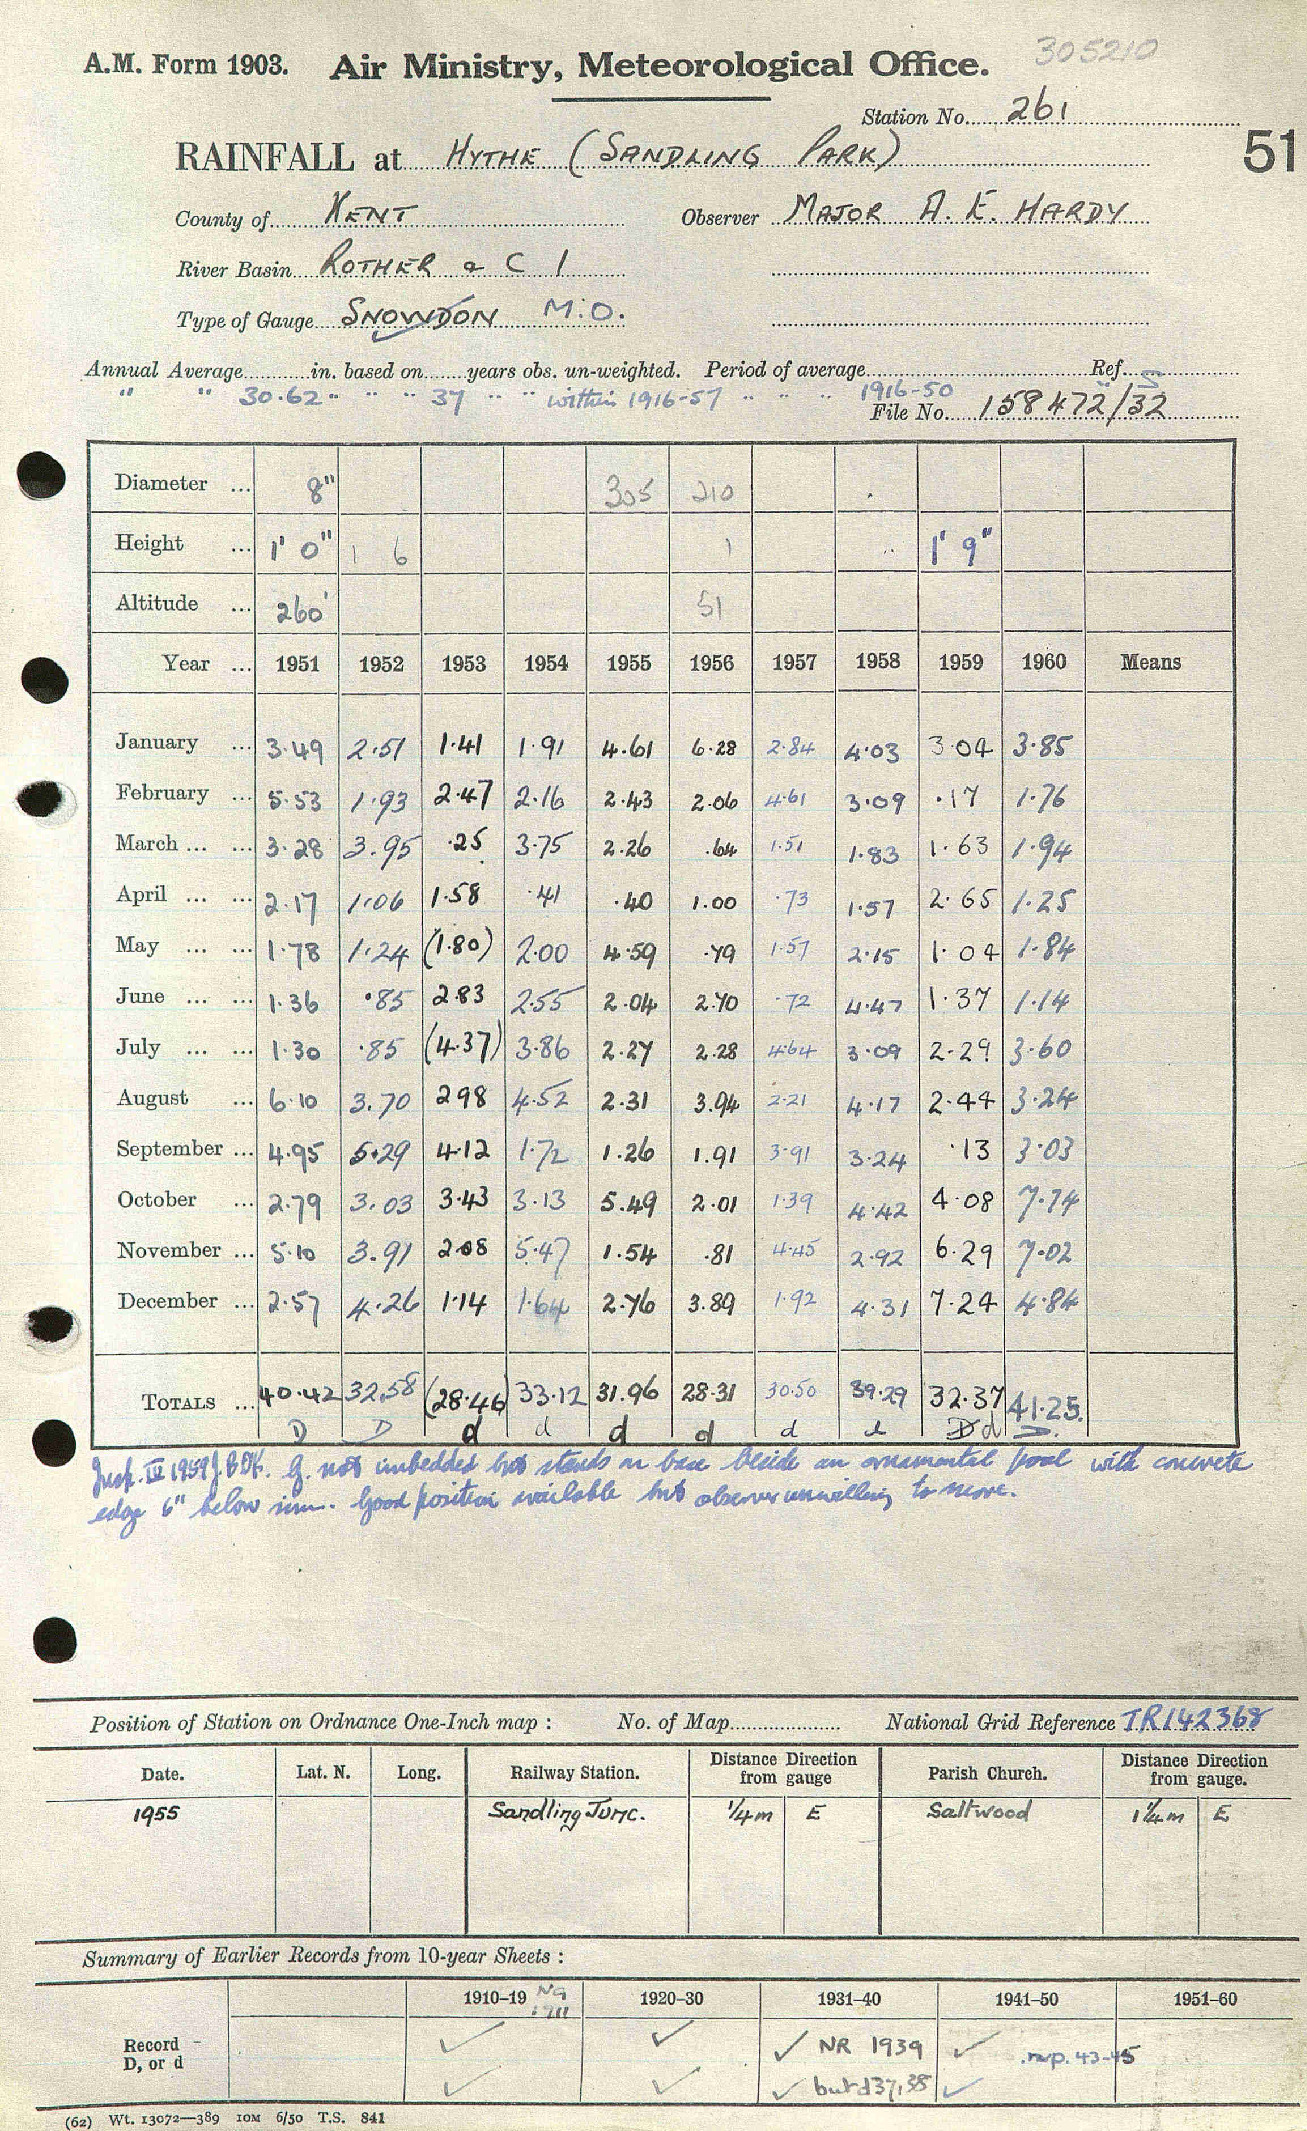 305210
A.M. Form 1903. Air Ministry, Meteorological Office.
Station No. 261
51
RAINFALL at HYTHE (SANDLING PARK)
County of KENT Observer MAJOR A. E. HARDY
River Basin ROTHER & C 1
Type of Gauge SNOWDON M.O.
Annual Average in. based on years obs. un-weighted. Period of average Ref. S
" " 30.62 " " " 37 " " within 1916-57 " " " 1916-50
File No. 158472/32
Diameter ... 8" 305 210
Height ... 1' 0" 1 6 1 1' 9"
Altitude ... 260' 51
Year ... 1951 1952 1953 1954 1955 1956 1957 1958 1959 1960 Means
January ... 3.49 2.51 1.41 1.91 4.61 6.28 2.84 4.03 3.04 3.85
February ... 5.53 1.93 2.47 2.16 2.43 2.06 4.61 3.09 .17 1.76
March ... ... 3.28 3.95 .25 3.75 2.26 .64 1.51 1.83 1.63 1.94
April ... ... 2.17 1.06 1.58 .41 .40 1.00 .73 1.57 2.65 1.25
May ... ... 1.78 1.24 (1.80) 2.00 4.59 .79 1.57 2.15 1.04 1.84
June ... ... 1.36 .85 2.83 2.55 2.04 2.70 .72 4.47 1.37 1.14
July ... ... 1.30 .85 (4.37) 3.86 2.27 2.28 4.64 3.09 2.29 3.60
August ... 6.10 3.70 298 4.52 2.31 3.94 2.21 4.17 2.44 3.24
September ... 4.95 5.29 4.12 1.72 1.26 1.91 3.91 3.24 .13 3.03
October ... 2.79 3.03 3.43 3.13 5.49 2.01 1.39 4.42 4.08 7.74
November ... 5.10 3.91 2.08 5.47 1.54 .81 4.45 2.92 6.29 7.02
December ... 2.57 4.26 1.14 1.64 2.76 3.89 1.92 4.31 7.24 4.84
TOTALS ... 40.42 32.58 (28.46) 33.12 31.96 28.31 30.50 39.29 32.37 41.25
D D d d d d d d D d D.
Insp. IV 1959 G. not imbedded but stands on base beside an ornamental pool with concrete
edge 6" below rim. Good position available but observer unwilling to move.
Position of Station on Ordnance One-Inch map : No. of Map National Grid Reference TR142368
Date. Lat. N. Long. Railway Station. Distance from gauge Direction Parish Church. Distance from gauge. Direction
1955 Sandling Junc. 1/4 m E Saltwood 1 1/4 m E
Summary of Earlier Records from 10-year Sheets :
1910–19 1920–30 1931–40 1941–50 1951–60
1911
Record
D, or d
✓ ✓ ✓ NR 1939 ✓ 43-45
✓ ✓ ✓ but d 37,38 ✓
(62) Wt. 13072—389 10M 6/50 T.S. 841